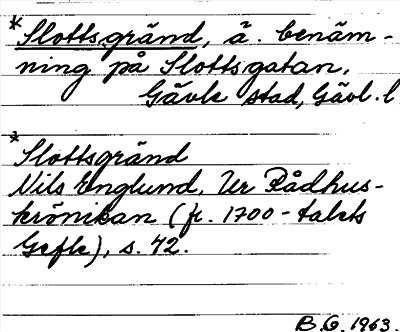 *Slottsgränd, ä. benäm-
ning på Slottsgatan,
Gävle stad, Gävl. l
*
Slottsgränd
Nils Englund, Ur Rådhus-
krönikan (fr. 1700-talets
Gefle), s. 42.
B.G. 1963.